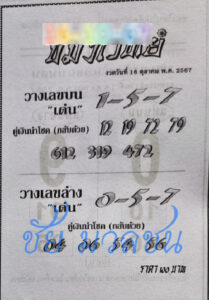 งวดวันที่ 16 ตุลาคม พ.ศ. 2567
วางเลขบน 1-5-7
"เด่น"
คู่เงินนำโชค (กลับด้วย) 12 19 72 79
612 319 472
วางเลขล่าง 0-5-7
"เด่น"
คู่เงินนำโชค (กลับด้วย)
04 06 54 56
ชัย มวลชน
ราคา ๑๐ บาท